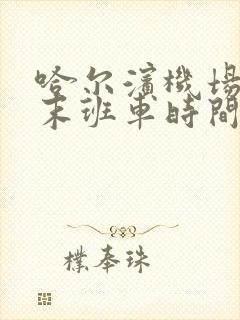 哈尔濱機場
末班車時間
樸奉珠